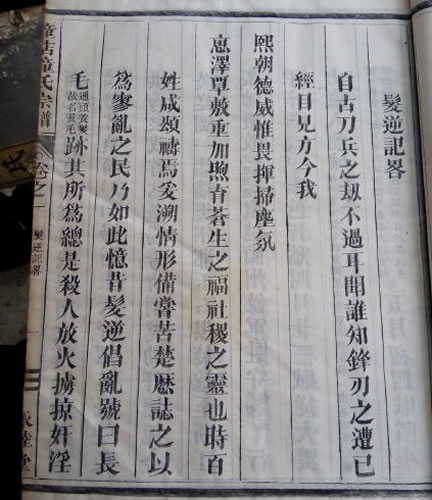 髮逆記畧
自古刀兵之刼不過耳聞誰知鋒刃之遭已
經目見方今我
熙朝德威惟畏掃掃塵氛
惠澤覃敷重加煦育蒼生之福社稷之靈也時百
姓咸頌禱焉爰溯情形備嘗苦楚歷誌之以
為寥亂之民乃如此憶昔髮逆倡亂號曰長
毛通頭養髮故名長毛跡其所為總是殺人放火擄掠奸淫
童氏宗譜
卷之一
髮逆記畧
睦堂